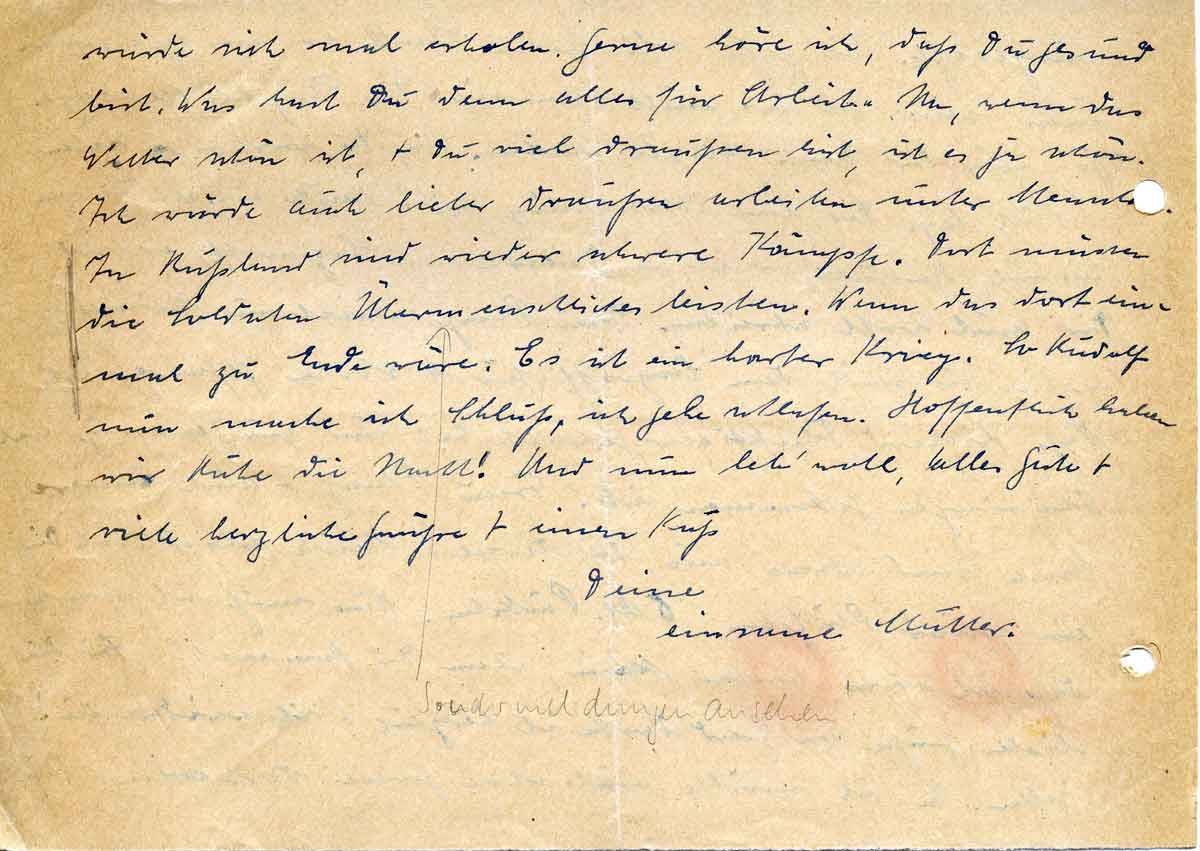 würde sich mal erholen. Gerne höre ich, daß Du gesund
bist. Was hast Du denn alles für Arbeit. Na, wenn das
Wetter schön ist, + Du viel draußen bist, ist es ja schön.
Ich würde auch lieber draußen arbeiten unter
In Rußland sind wieder schwere Kämpfe. Dort müssen
die Soldaten Übermenschliches leisten. Wenn das dort ein-
mal zu Ende wäre. Es ist ein harter Krieg. So Rudolf
nun mache ich Schluß, ich gehe schlafen. Hoffentlich haben
wir Ruhe die Nacht! Und nun leb' woll, alles Gute +
viele herzliche Grüße + einen Kuß
Deine
einsame Mutter.
Sondermeldungen ansehen